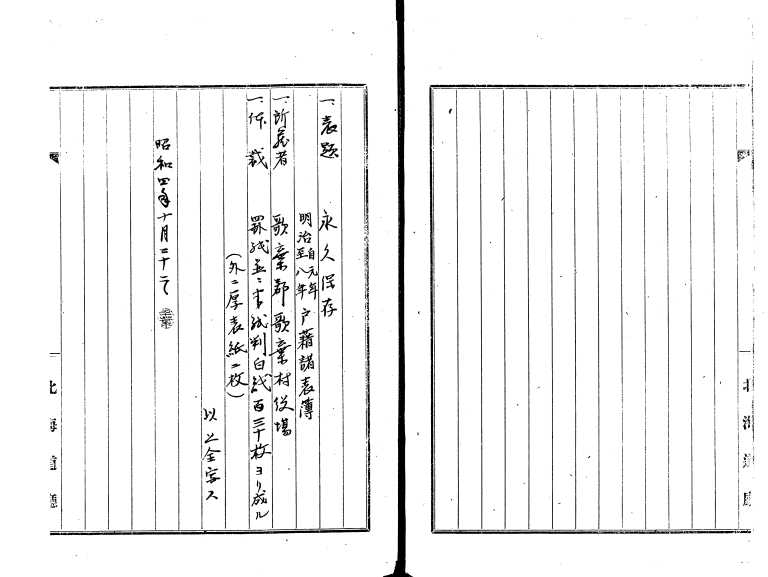 一、表題 永久保存
明治 自元年 至八年 戸籍諸表簿
一、所蔵者 歌棄郡歌棄村役場
一、体裁 罫紙並ニ半紙判白紙百三十枚ヨリ成ル
(外ニ厚表紙二枚)
以上全写ス
昭和四年十月二十
北海道庁
北海道庁